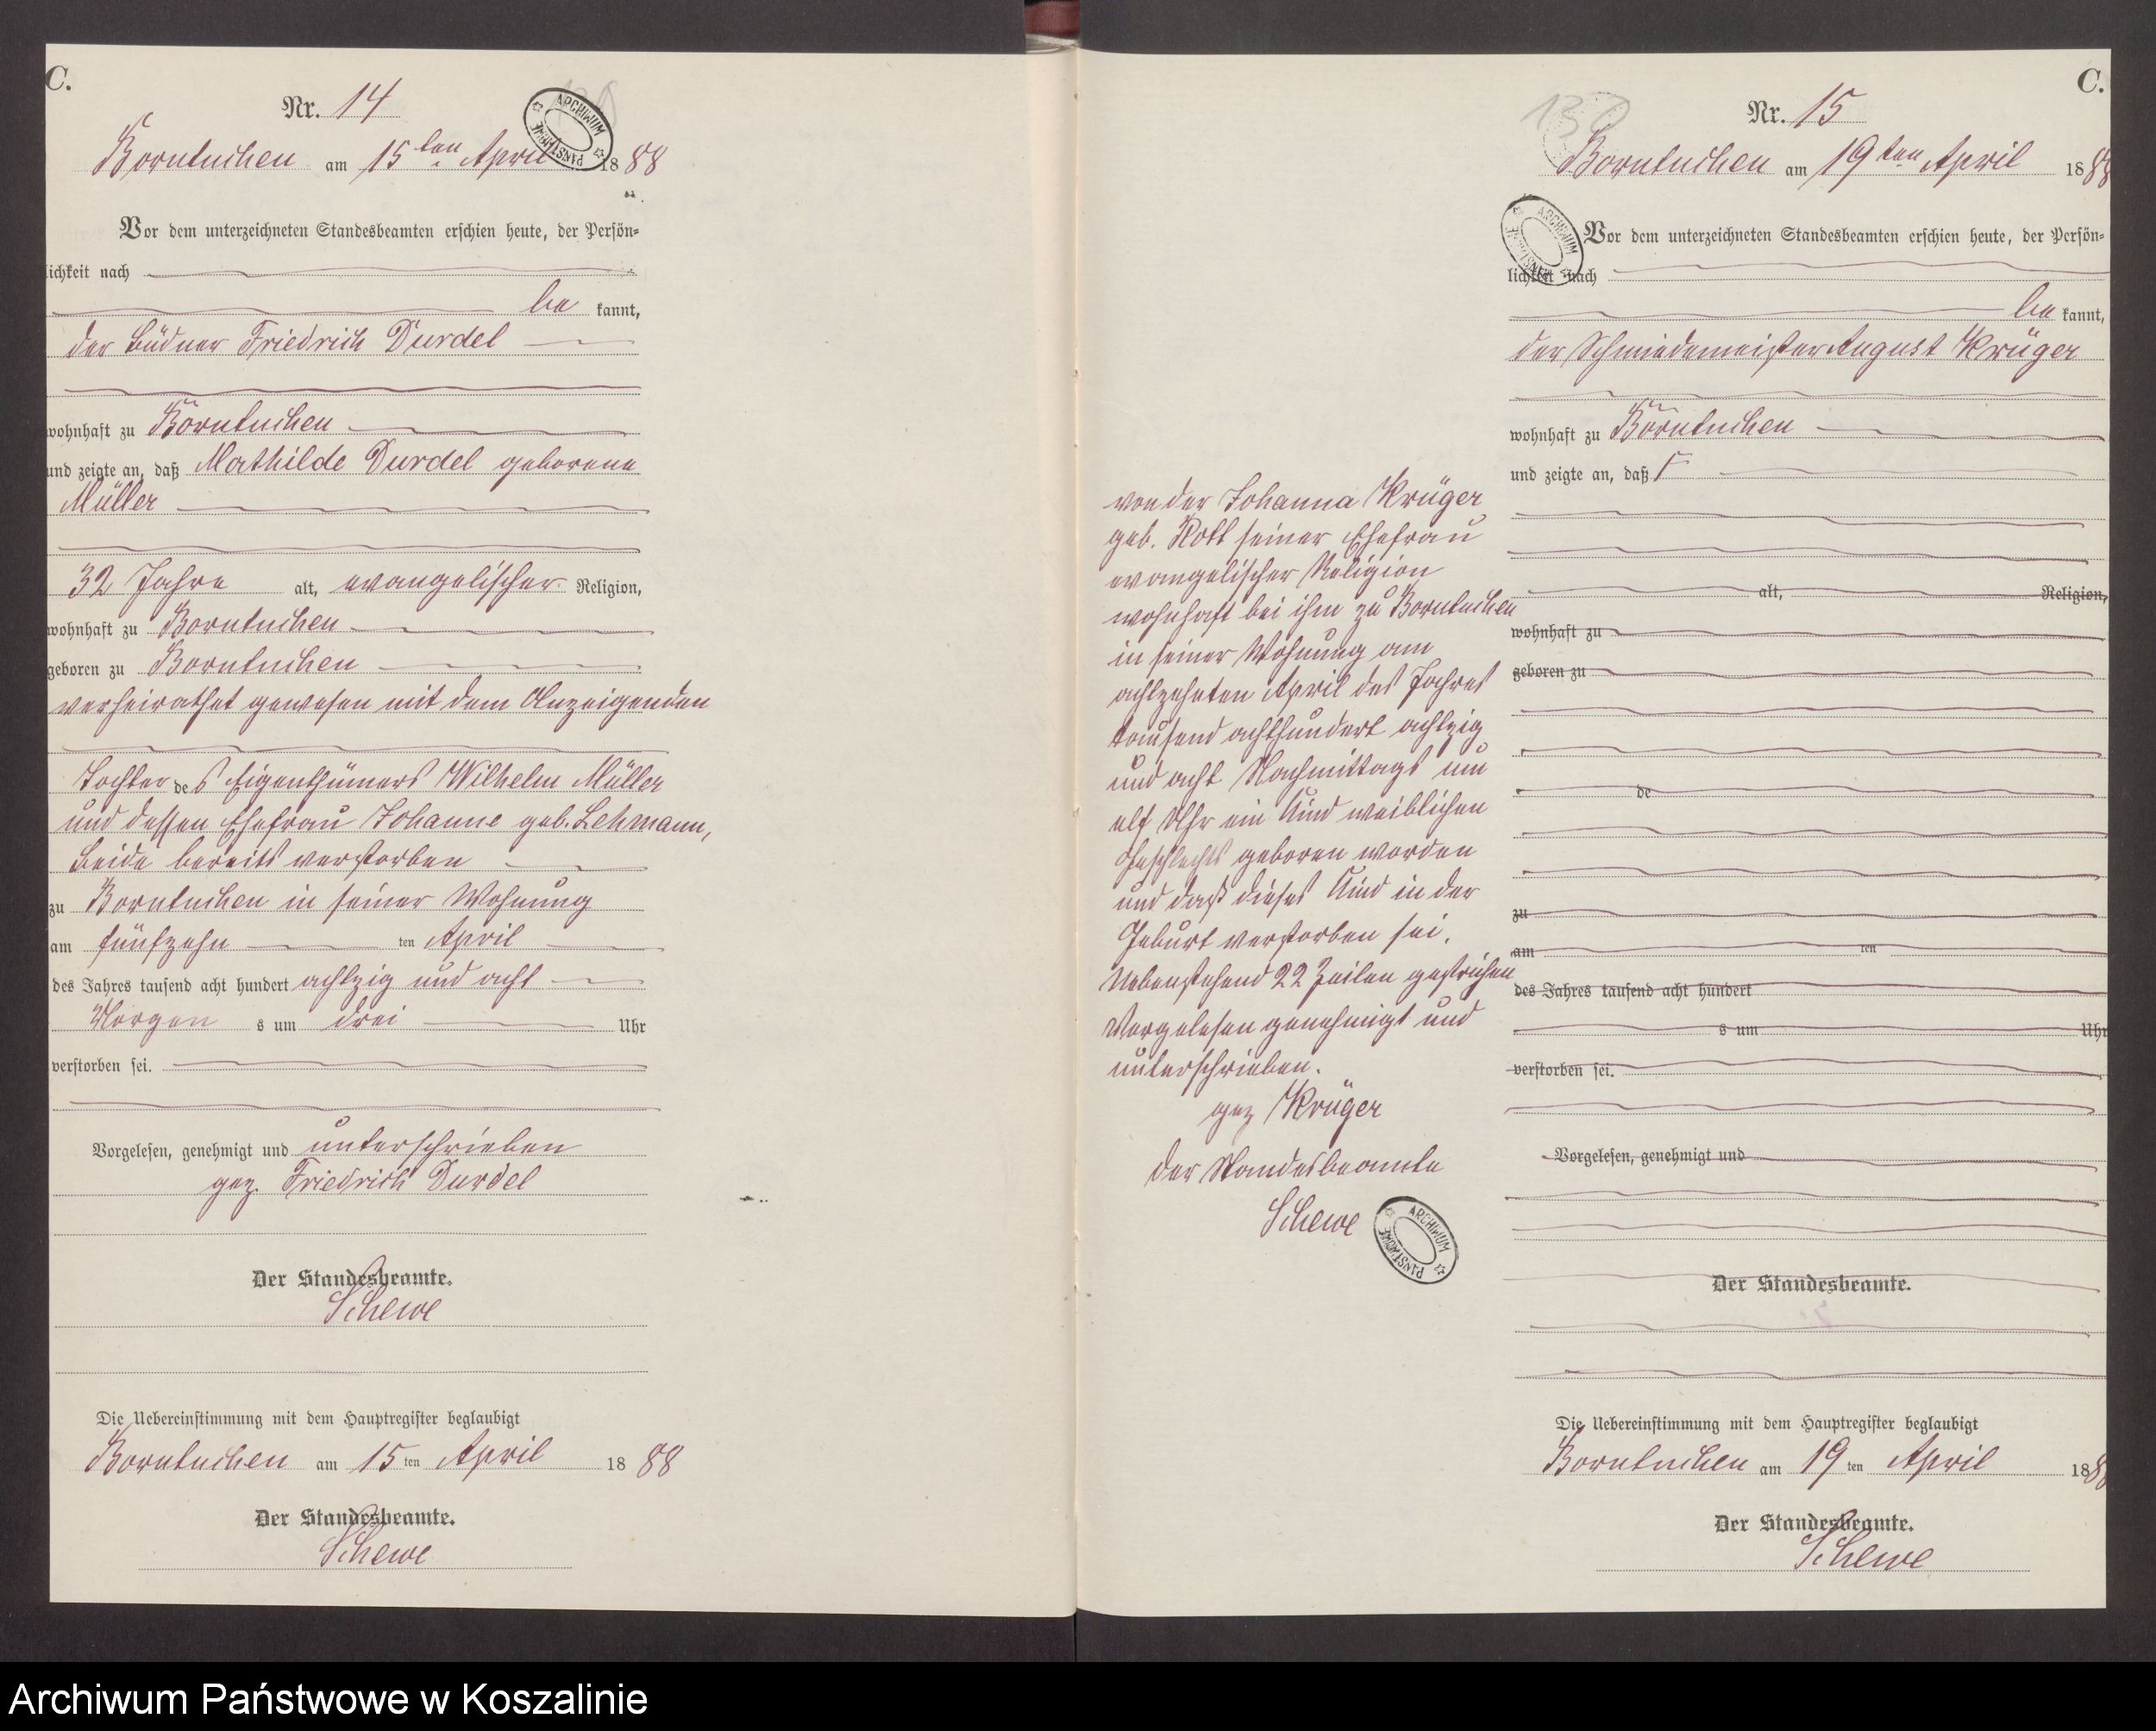 C.
Nr. 14
ARCHIWUM PAŃSTWOWE
Borntuchen am 15ten April 1888
Vor dem unterzeichneten Standesbeamten erschien heute, der Persön-
lichkeit nach
be kannt,
der Büdner Friedrich Durdel
wohnhaft zu Borntuchen
und zeigte an, daß Mathilde Durdel geborene
Müller
32 Jahre alt, evangelischer Religion,
wohnhaft zu Borntuchen
geboren zu Borntuchen
verheirathet gewesen mit dem Anzeigenden
Tochter des Eigenthümers Wilhelm Müller
und dessen Ehefrau Johanne geb. Lehmann,
Beide bereits verstorben
zu Borntuchen in seiner Wohnung
am fünfzehn ten April
des Jahres tausend acht hundert achtzig und acht
Morgen s um drei Uhr
verstorben sei.
Vorgelesen, genehmigt und unterschrieben
gez. Friedrich Durdel
Der Standesbeamte.
Schewe
Die Uebereinstimmung mit dem Hauptregister beglaubigt
Borntuchen am 15 ten April 1888
Der Standesbeamte.
Schewe
C.
Nr. 15
Borntuchen am 19ten April 1888
ARCHIWUM PAŃSTWOWE
Vor dem unterzeichneten Standesbeamten erschien heute, der Persön-
lichkeit nach
be kannt,
der Schmiedemeister August Krüger
wohnhaft zu Borntuchen
und zeigte an, daß
alt, Religion,
wohnhaft zu
geboren zu
de
zu
am ten
des Jahres tausend acht hundert
s um Uhr
verstorben sei.
Vorgelesen, genehmigt und
von der Johanna Krüger
geb. Rott seiner Ehefrau
evangelischer Religion
wohnhaft bei ihm zu Borntuchen
in seiner Wohnung am
achtzehnten April des Jahres
tausend achthundert achtzig
und acht Nachmittags um
elf Uhr ein Kind weiblichen
Geschlechts geboren worden
und daß dieses Kind in der
Geburt verstorben sei.
Nebenstehend 22 Zeilen gestrichen
Vorgelesen genehmigt und
unterschrieben.
gez Krüger
Der Standesbeamte
Schewe
ARCHIWUM PAŃSTWOWE
Der Standesbeamte.
Die Uebereinstimmung mit dem Hauptregister beglaubigt
Borntuchen am 19 ten April 1888
Der Standesbeamte.
Schewe
Archiwum Państwowe w Koszalinie